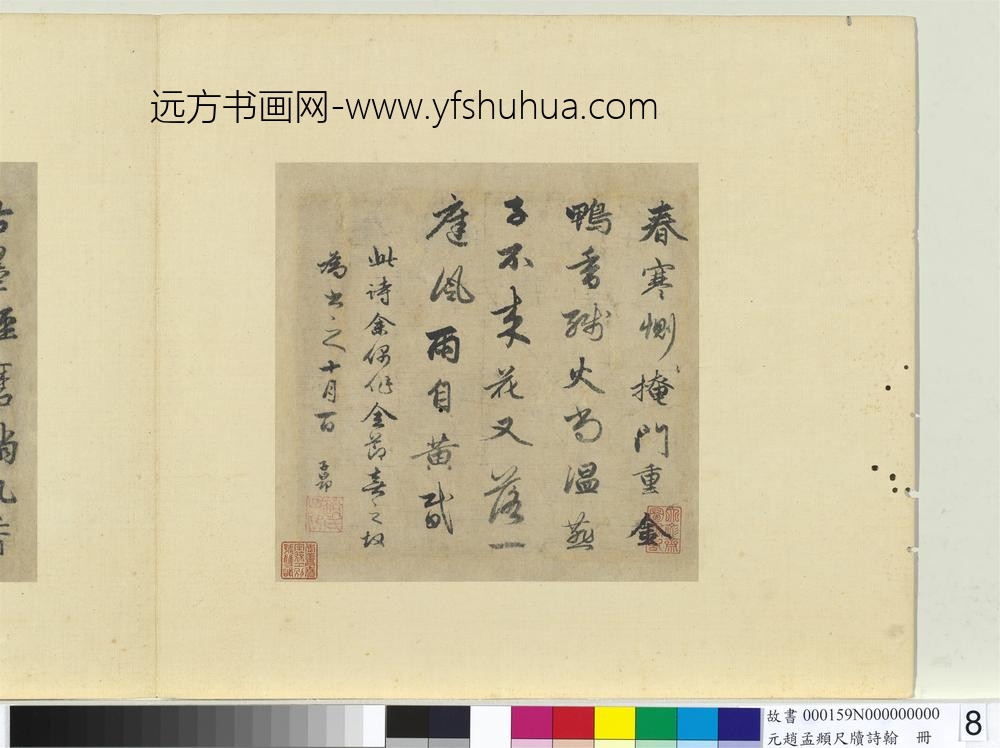 远方书画网-www.yfshuhua.com
春寒惻〻掩門重金
鴨香殘火尚温燕
子不来花又落一
庭風雨自黄昏
此詩余偶作金節喜之故
為書之十月一日
子昂
故書 000159N000000000
元趙孟頫尺牘詩翰 冊
8